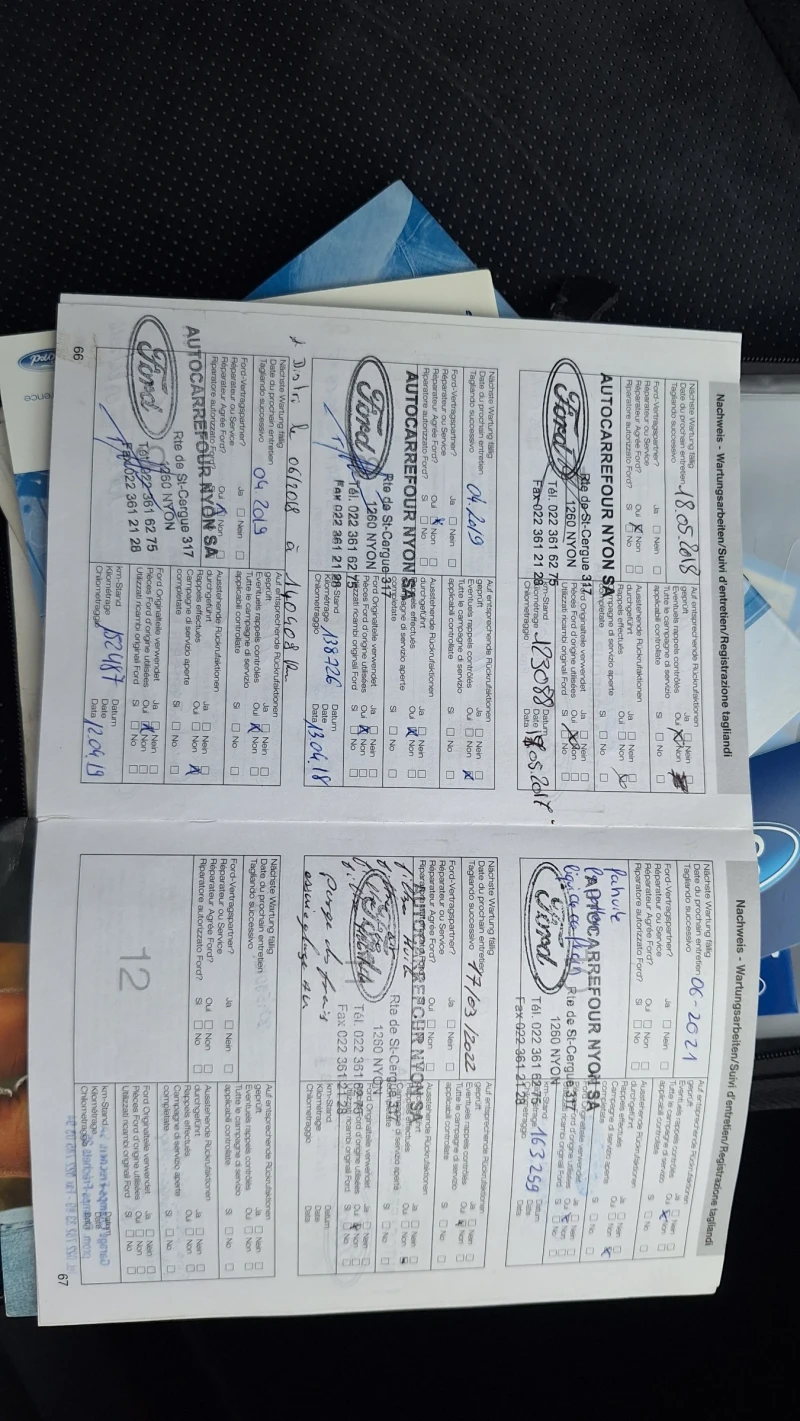 Nachweis - Wartungsarbeiten/Suivi d'entretien/Registrazione tagliandi
Nächste Wartung fällig
Date du prochain entretien 18.05.2018
Tagliando successivo
Ford-Vertragspartner? Ja Nein
Réparateur ou Service
Réparateur Agréé Ford? Oui Non
Riparatore autorizzato Ford? Si No
AUTOCARREFOUR NYON SA
Rte de St-Cergue 317
1260 NYON
Ford
Tél. 022 361 62 75
Fax 022 361 21 28
Auf entsprechende Rückrufaktionen
geprüft Ja Nein
Eventuels rappels contrôlés Oui Non
Tutte le campagne di servizio
applicabili controllate Si No
Ausstehende Rückrufaktionen
durchgeführt Ja Nein
Rappels effectués Oui Non
Campagne di servizio aperte
completate Si No
Ford Originalteile verwendet Ja Nein
Pièces Ford d'origine utilisées Oui Non
Utilizzati ricambi originali Ford Si No
km-Stand Datum
Kilométrage 123088 Date 18.05.2017
Chilometraggio Data
Nächste Wartung fällig
Date du prochain entretien 04.2019
Tagliando successivo
Ford-Vertragspartner? Ja Nein
Réparateur ou Service
Réparateur Agréé Ford? Oui Non
Riparatore autorizzato Ford? Si No
AUTOCARREFOUR NYON SA
Rte de St-Cergue 317
1260 NYON
Ford
Tél. 022 361 62 75
Fax 022 361 21 28
Auf entsprechende Rückrufaktionen
geprüft Ja Nein
Eventuels rappels contrôlés Oui Non
Tutte le campagne di servizio
applicabili controllate Si No
Ausstehende Rückrufaktionen
durchgeführt Ja Nein
Rappels effectués Oui Non
Campagne di servizio aperte
completate Si No
Ford Originalteile verwendet Ja Nein
Pièces Ford d'origine utilisées Oui Non
Utilizzati ricambi originali Ford Si No
km-Stand Datum
Kilométrage 138726 Date
Chilometraggio Data 13.04.18
Distri. le 06/2018 à 140408 km
Nächste Wartung fällig
Date du prochain entretien 04 2019
Tagliando successivo
Ford-Vertragspartner? Ja Nein
Réparateur ou Service
Réparateur Agréé Ford? Oui Non
Riparatore autorizzato Ford?
AUTOCARREFOUR NYON SA
Rte de St-Cergue 317
1260 NYON
Ford
Tél. 022 361 62 75
Fax 022 361 21 28
Auf entsprechende Rückrufaktionen
geprüft Ja Nein
Eventuels rappels contrôlés Oui Non
Tutte le campagne di servizio
applicabili controllate Si No
Ausstehende Rückrufaktionen
durchgeführt Ja Nein
Rappels effectués Oui Non
Campagne di servizio aperte
completate Si No
Ford Originalteile verwendet Ja Nein
Pièces Ford d'origine utilisées Oui Non
Utilizzati ricambi originali Ford Si No
km-Stand Datum
Kilométrage 152487 Date
Chilometraggio Data 12.04.19
66
Nachweis - Wartungsarbeiten/Suivi d'entretien/Registrazione tagliandi
Nächste Wartung fällig
Date du prochain entretien 06-2021
Tagliando successivo
Ford-Vertragspartner? Ja Nein
Réparateur ou Service
Réparateur Agréé Ford? Oui Non
Riparatore autorizzato Ford? Si No
AUTOCARREFOUR NYON SA
Rte de St-Cergue 317
1260 NYON
Ford
Tél. 022 361 62 75
Fax 022 361 21 28
Auf entsprechende Rückrufaktionen
geprüft Ja Nein
Eventuels rappels contrôlés Oui Non
Tutte le campagne di servizio
applicabili controllate Si No
Ausstehende Rückrufaktionen
durchgeführt Ja Nein
Rappels effectués Oui Non
Campagne di servizio aperte
Si No
Ja Nein
Oui Non
Si No
km-Stand Datum
163259 Date
Data
Nächste Wartung fällig
Date du prochain entretien 17/03/2022
Tagliando successivo
Ford-Vertragspartner? Ja Nein
Réparateur ou Service
Réparateur Agréé Ford? Oui Non
AUTOCARREFOUR NYON SA
Rte de St-Cergue
1260 NYON
Tél. 022 361 62 75
Fax 022 361 21 28
Purge du frais
Auf entsprechende Rückrufaktionen
geprüft Ja Nein
Eventuels rappels contrôlés Oui Non
Tutte le campagne di servizio
applicabili controllate Si No
Ausstehende Rückrufaktionen
Ja Nein
Oui Non
Ja Nein
Oui Non
Utilizzati ricambi originali Ford Si No
km-Stand Datum
Kilométrage Date
Chilometraggio Data
Nächste Wartung fällig
Date du prochain entretien
Tagliando successivo
Ford-Vertragspartner? Ja Nein
Réparateur ou Service
Réparateur Agréé Ford? Oui Non
Riparatore autorizzato Ford? Si No
12
Auf entsprechende Rückrufaktionen
geprüft Ja Nein
Eventuels rappels contrôlés Oui Non
Tutte le campagne di servizio
applicabili controllate Si No
Ausstehende Rückrufaktionen
durchgeführt Ja Nein
Rappels effectués Oui Non
Campagne di servizio aperte
completate Si No
Ford Originalteile verwendet Ja Nein
Pièces Ford d'origine utilisées Oui Non
Utilizzati ricambi originali Ford Si No
km-Stand Datum
Kilométrage Date
Chilometraggio Data
67